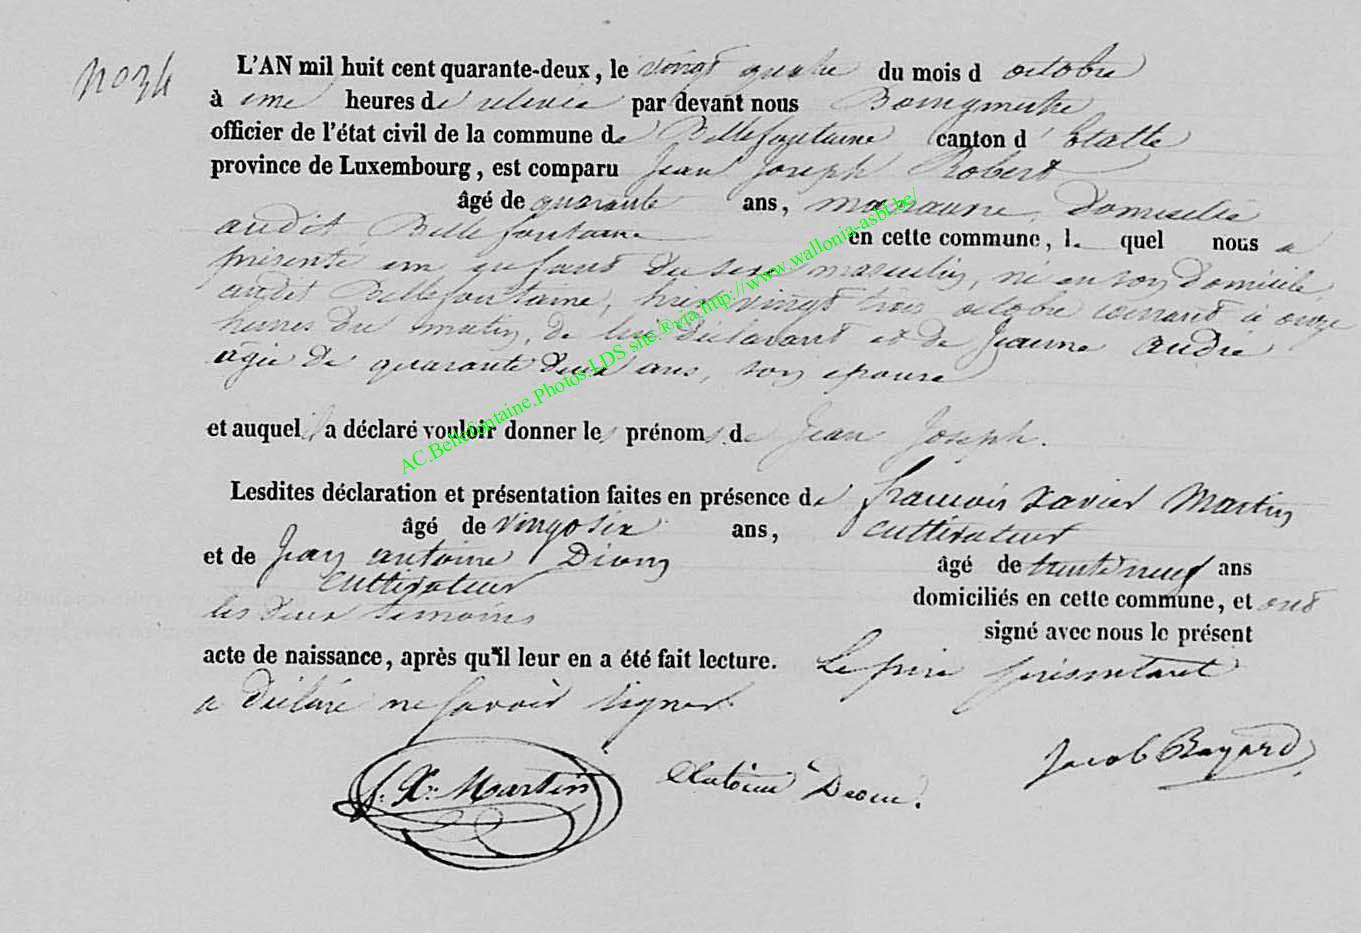 No 34
L'AN mil huit cent quarante-deux, le vingt quatre du mois d octobre
à une heures de relevée par devant nous Bourgmestre
officier de l'état civil de la commune de Bellefontaine canton d'Etalle
province de Luxembourg, est comparu Jean Joseph Robert
âgé de quarante ans, manœuvre, domicilié
audit Bellefontaine en cette commune, l quel nous a
présenté un enfant du sexe masculin, né en son domicile
audit Bellefontaine, hier vingt trois octobre courant à onze
heures du matin, de lui déclarant et de Jeanne andré
agée de quarante deux ans, son épouse
et auquel il a déclaré vouloir donner les prénoms de Jean Joseph.
Lesdites déclaration et présentation faites en présence de françois Xavier Martin
âgé de vingt six ans, cultivateur
et de Jean antoine Dion âgé de trente neuf ans
cultivateur domiciliés en cette commune, et ont
les deux temoins signé avec nous le présent
acte de naissance, après qu'il leur en a été fait lecture. Le père présentant
a déclaré ne savoir signer.
f. X. Martin Antoine Deom. Jacob Bayard
AC.Bellefontaine.Photos.LDS site.®.via.http://www.wallonia-asbl.be/